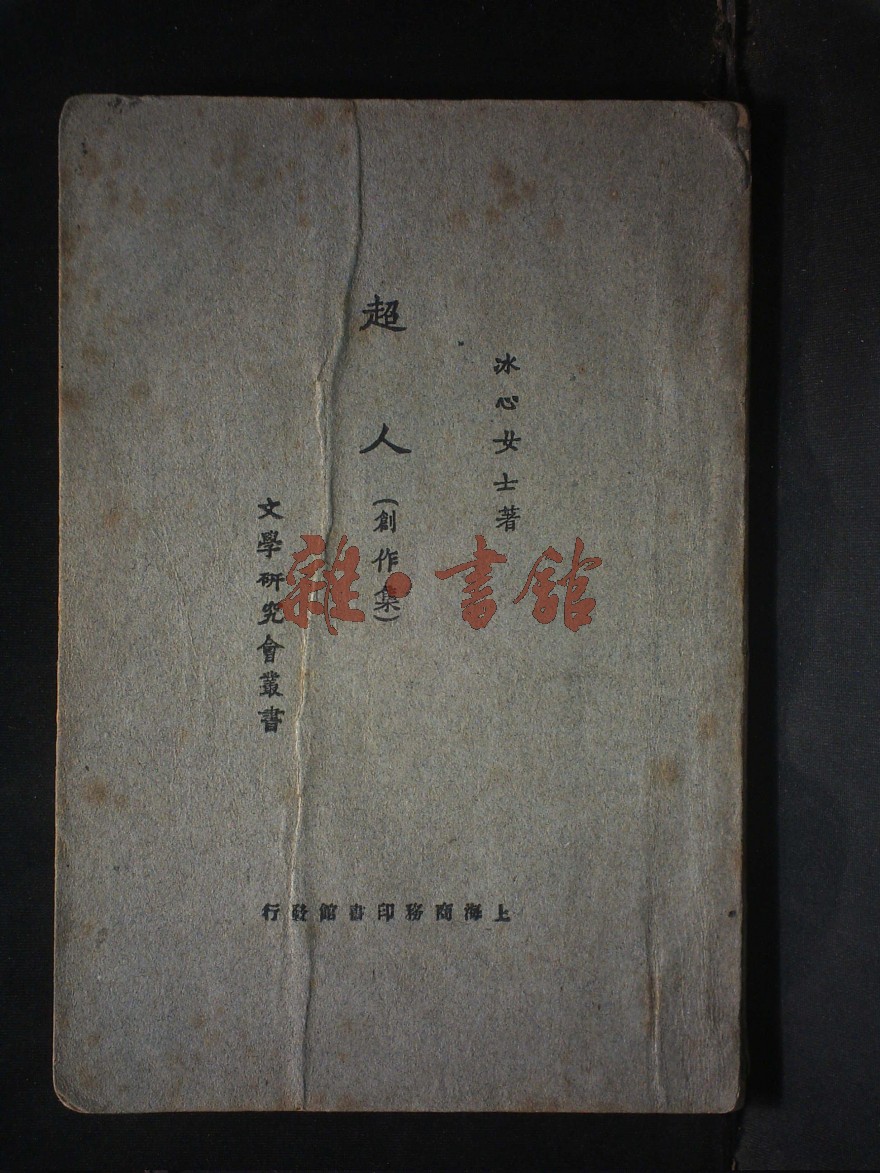 冰心女士著
超人(創作集)
文學研究會叢書
上海商務印書館發行
雜・書館